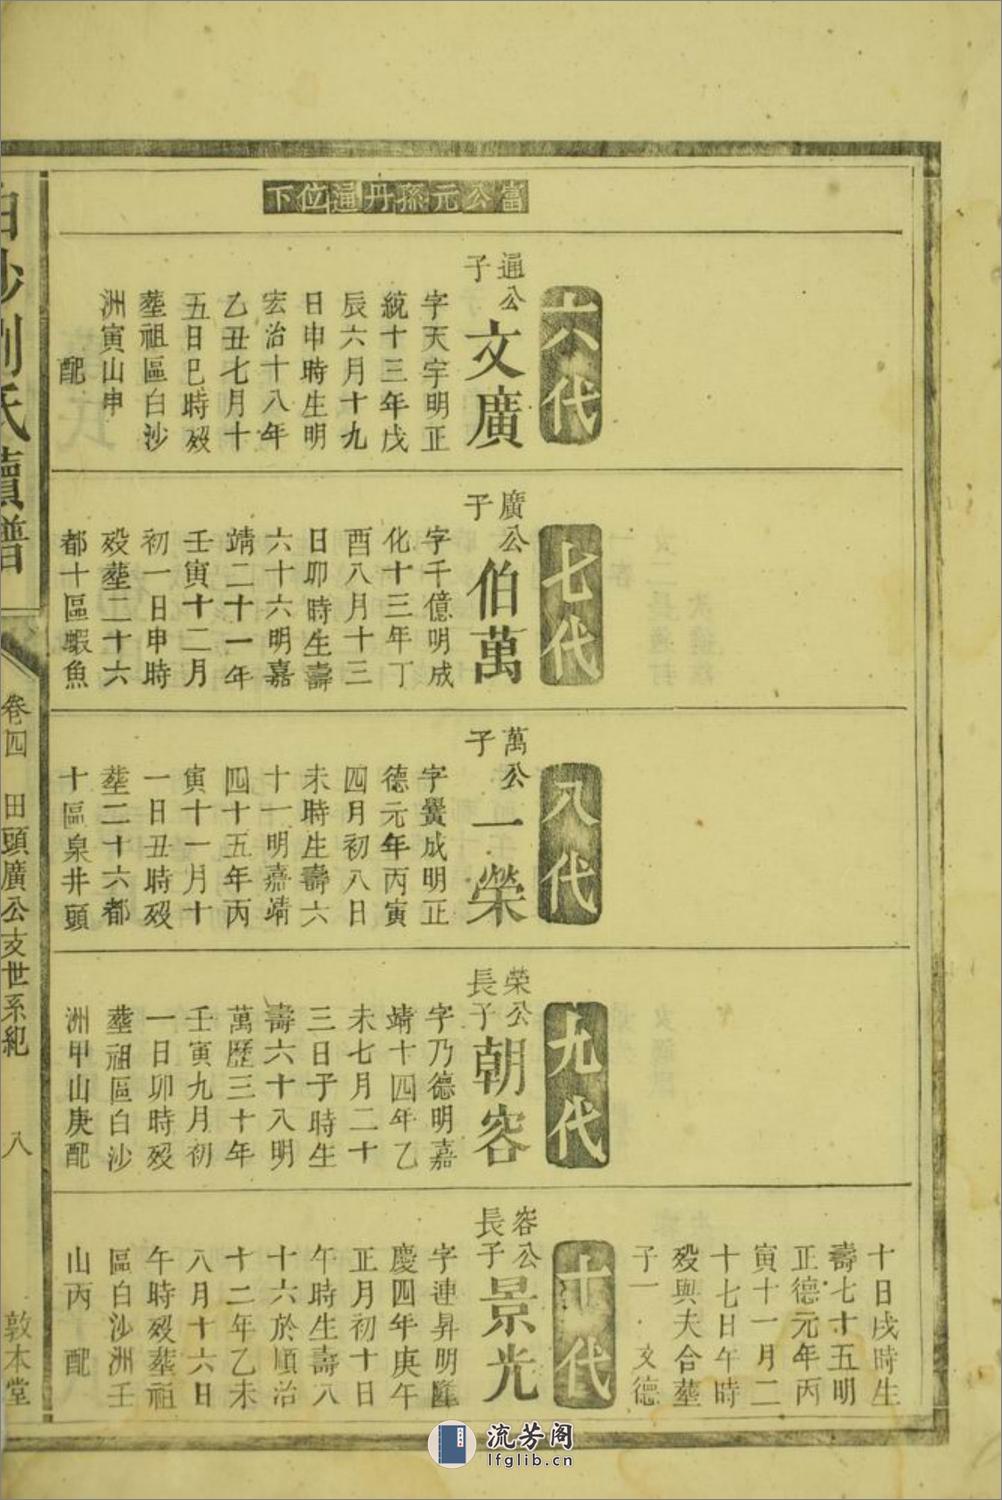 富公元孫丹逼位下
六代
通公
子
文廣
字天宇明正
統十三年戊
辰六月十九
日申時生明
宏治十八年
乙丑七月十
五日巳時歿
塟祖區白沙
洲寅山申
配
七代
廣公
子
伯萬
字千億明成
化十三年丁
酉八月十三
日卯時生壽
六十六明嘉
靖二十一年
壬寅十二月
初一日申時
歿塟二十六
都十區蝦魚
八代
萬公
子
一榮
字黌成明正
德元年丙寅
四月初八日
未時生壽六
十一明嘉靖
四十五年丙
寅十一月十
一日丑時歿
塟二十六都
十區泉井頭
九代
荣公
長子
朝容
字乃德明嘉
靖十四年乙
未七月二十
三日子時生
壽六十八明
萬歷三十年
壬寅九月初
一日卯時歿
塟祖區白沙
洲甲山庚配
十日戌時生
壽七十五明
正德元年丙
寅十一月二
十七日午時
歿與夫合塟
子一 文德
十代
容公
長子
景光
字連昇明隆
慶四年庚午
正月初十日
午時生壽八
十六於順治
十二年乙未
八月十六日
午時歿塟祖
區白沙洲壬
山丙 配
白沙劉氏續譜
卷四 田頭廣公支世系紀 八 敦本堂
流芳阁
lfglib.cn